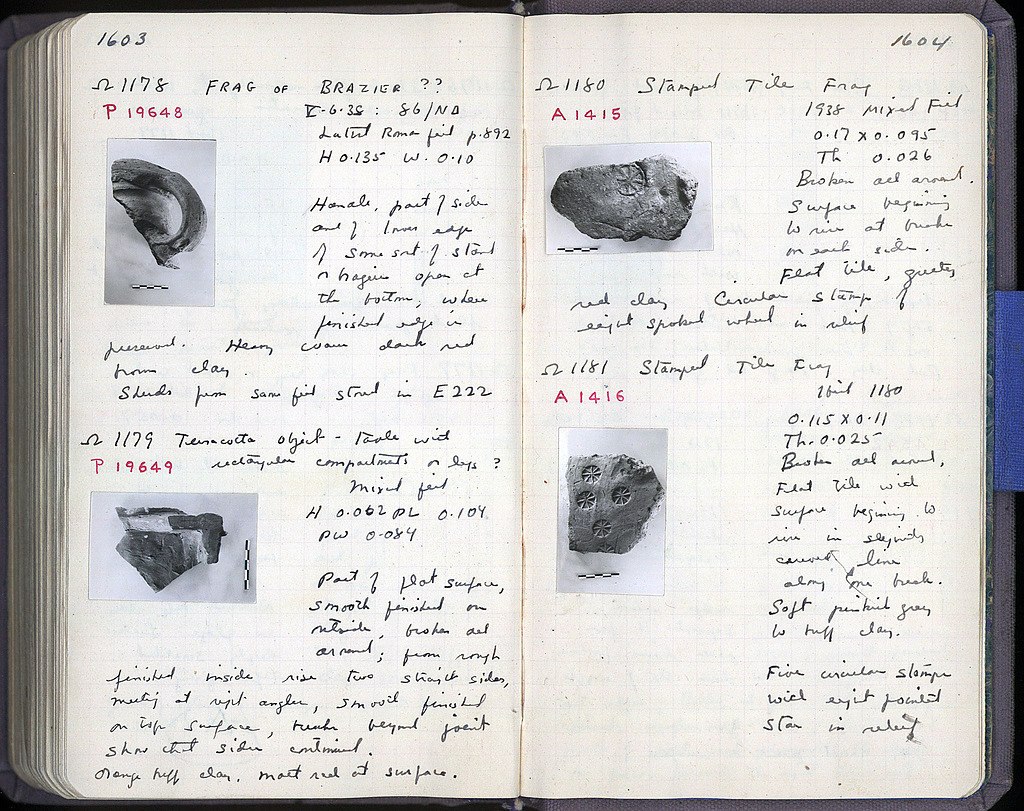 1603
Ω 1178 FRAG OF BRAZIER ??
P 19648
V-6-38 : 86/ND
Latest Roman fill p.892
H 0.135 W. 0.10
Handle, part of side
and of lower edge
of some sort of stand
or brazier open at
the bottom, where
finished edge is
preserved. Heavy coarse dark red
brown clay.
Sherds from same fill stored in E222
Ω 1179 Terracotta object - Table with
P 19649 rectangular compartments or legs ?
Mixed fill.
H 0.062 PL 0.104
PW 0.084
Part of flat surface,
smooth finished on
outside, broken all
around; from rough
finished inside rise two straight sides,
meeting at right angles, smooth finished
on top surface, breaks beyond joint
show that sides continued.
Orange buff clay. Matt red at surface.
1604
Ω 1180 Stamped Tile Frag
A 1415
1938 Mixed Fill
0.17 X 0.095
Th 0.026
Broken all around.
Surface beginning
to rise at break
on each side.
Flat tile, gritty
red clay Circular stamp of
eight spoked wheel in relief
Ω 1181 Stamped Tile Frag
A 1416
1180
0.115 X 0.11
Th. 0.025
Broken all around,
Flat tile with
surface beginning to
rise in slightly
curved line
along one break.
Soft pinkish gray
to buff clay.
Five circular stamps
with eight pointed
star in relief